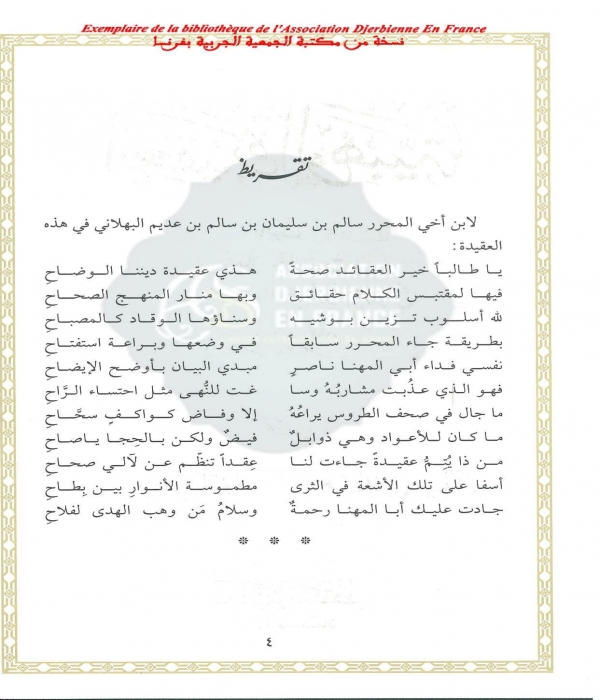 Exemplaire de la bibliothèque de l'Association Djerbienne En France
نسخة من مكتبة الجمعية الجربية بفرنسا
تقريظ
لابن أخي المحرر سالم بن سليمان بن سالم بن عديم البهلاني في هذه
العقيدة :
يا طالباً خير العقائد صحةً هذي عقيدة ديننا الوضاحِ
فيها لمقتبس الكلام حقائق وبها منار المنهج الصحاحِ
لله أسلوب تزين بوشيه وسناؤها الوقاد كالمصباحِ
بطريقة جاء المحرر سابقاً في وضعها وبراعة استفتاحِ
نفسي فداء أبي المهنا ناصرٍ مبدي البيان بأوضح الإيضاحِ
فهو الذي عذُبت مشاربُهُ وسا غت للنُّهى مثل احتساء الرَّاحِ
ما جال في صحف الطروس يراعُهُ إلا وفاض كواكفٍ سحَّاحِ
ما كان للأعواد وهي ذوابلٌ فيضٌ ولكن بالحِجا ياصاحِ
من ذا يُتِمُّ عقيدةً جاءت لنا عِقداً تنظّم عن لآلي صحاحِ
أسفا على تلك الأشعة في الثرى مطموسة الأنوار بين بِطاحِ
جادت عليك أبا المهنا رحمةٌ وسلامُ مَن وهب الهدى لفلاحِ
* * *
ASSOCIATION
DJERBIENNE
EN FRANCE
٤